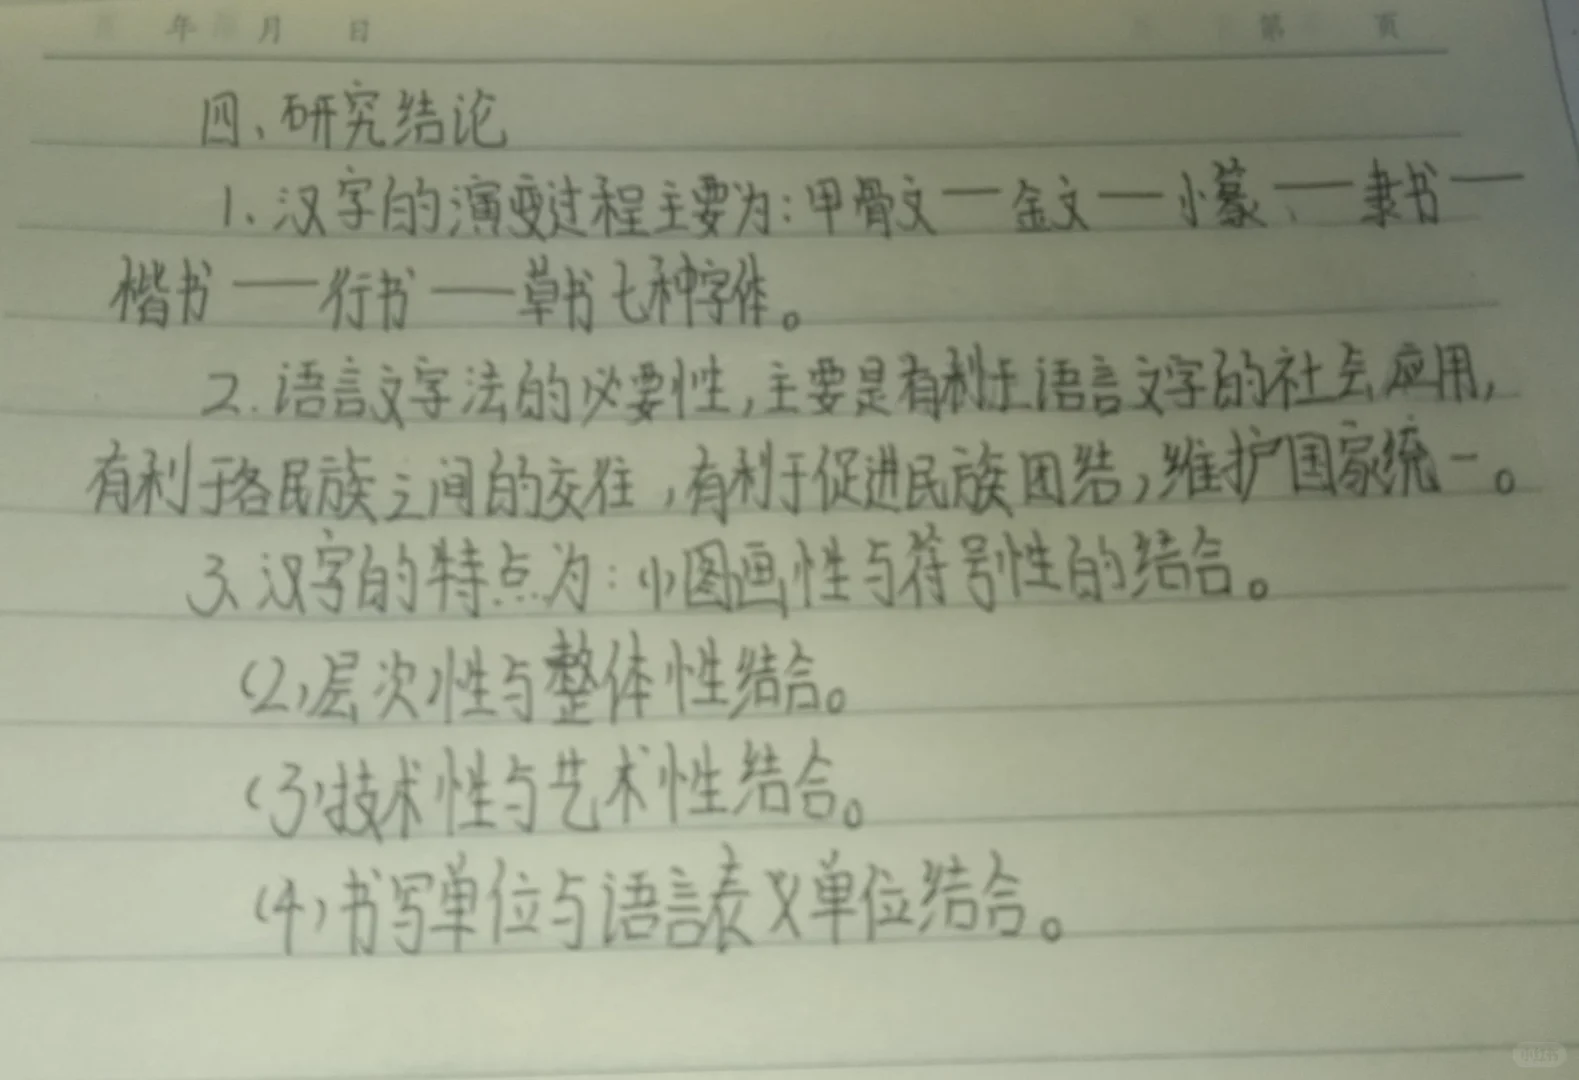 年 月 日 第 页
四、研究结论
1、汉字的演变过程主要为：甲骨文——金文——小篆、——隶书——
楷书——行书——草书七种字体。
2.语言文字法的必要性，主要是有利于语言文字的社会应用，
有利于各民族之间的交往，有利于促进民族团结，维护国家统一。
3、汉字的特点为：(1)图画性与符号性的结合。
(2)层次性与整体性结合。
(3)技术性与艺术性结合。
(4)书写单位与语言表义单位结合。
小红书